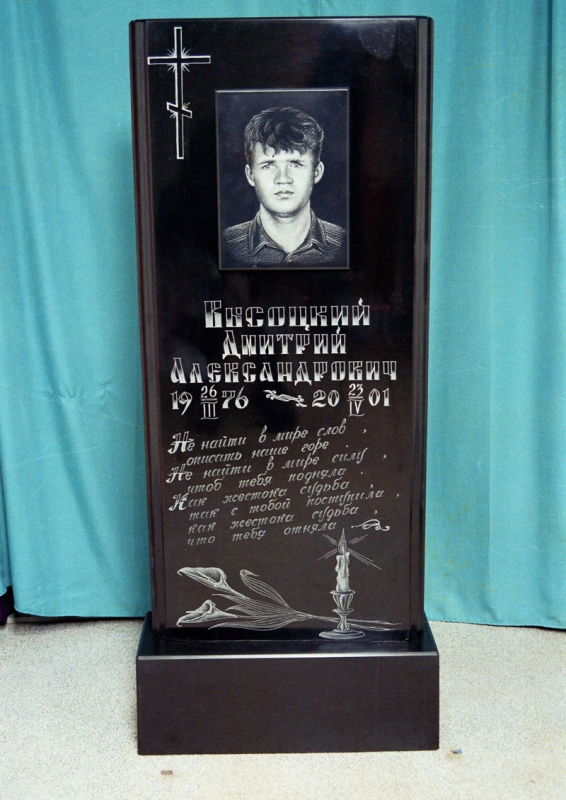 Высоцкий
Дмитрий
Александрович
19 26/III 76 20 23/IV 01
Не найти в мире слов,
описать наше горе.
Не найти в мире силу,
чтоб тебя подняла.
Как жестока судьба,
так с тобой поступила,
как жестока судьба,
что тебя отняла